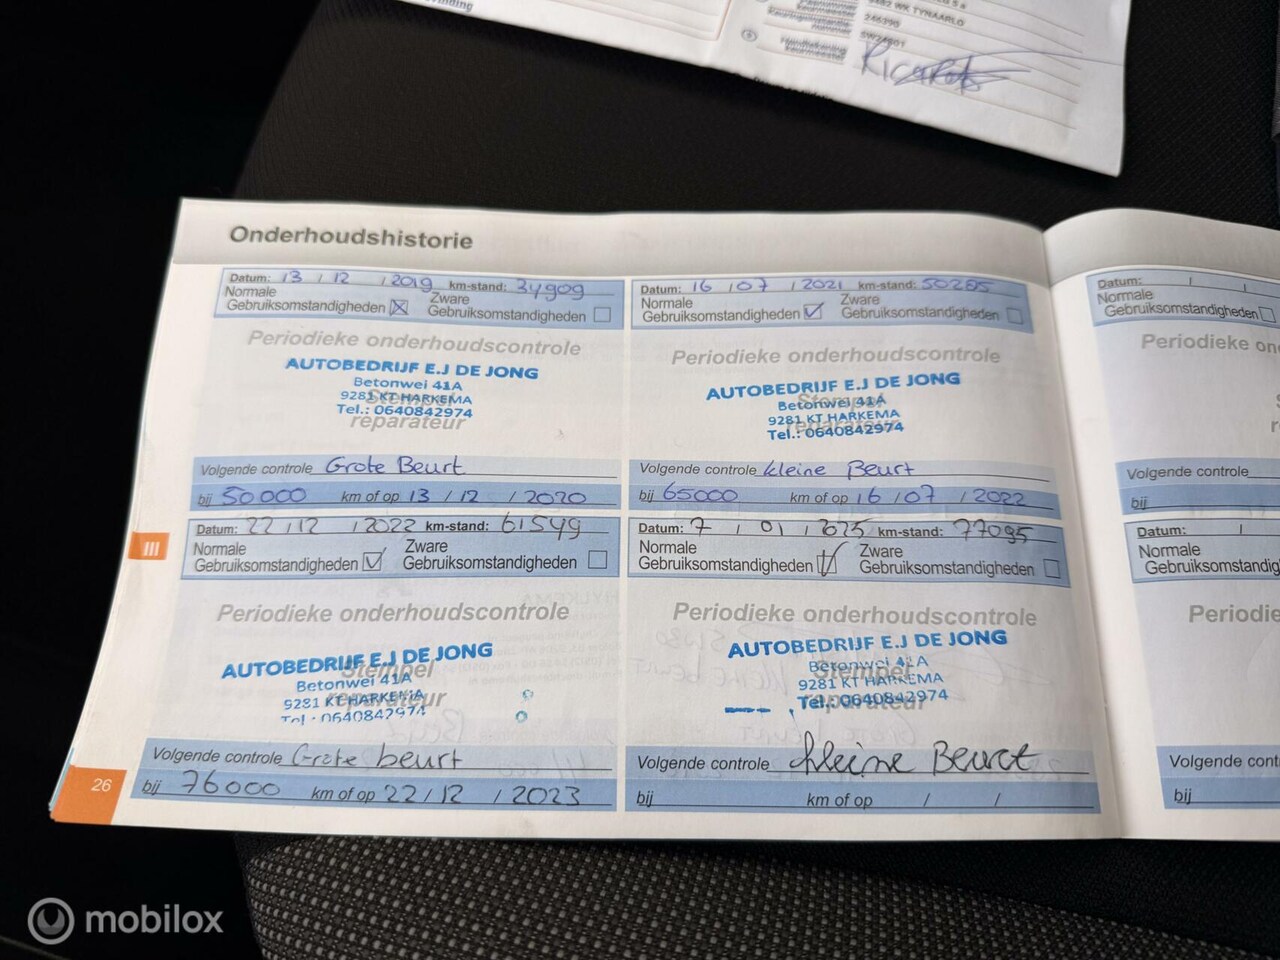 9482 WK TYNAARLO
246390
SW24801
Handtekening
keurmeester
Onderhoudshistorie
Datum: 13 / 12 / 2019 km-stand: 34909
Normale
Gebruiksomstandigheden
Zware
Gebruiksomstandigheden
Periodieke onderhoudscontrole
AUTOBEDRIJF E.J DE JONG
Betonwei 41A
9281 KT HARKEMA
Stempel
Tel.: 0640842974
reparateur
Volgende controle Grote Beurt
bij 50000 km of op 13 / 12 / 2020
Datum: 16 / 07 / 2021 km-stand: 50285
Normale
Gebruiksomstandigheden
Zware
Gebruiksomstandigheden
Periodieke onderhoudscontrole
AUTOBEDRIJF E.J DE JONG
Stempel
Betonwei 41A
9281 KT HARKEMA
reparateur
Tel.: 0640842974
Volgende controle kleine Beurt
bij 65000 km of op 16 / 07 / 2022
III
Datum: 22 / 12 / 2022 km-stand: 61549
Normale
Gebruiksomstandigheden
Zware
Gebruiksomstandigheden
Periodieke onderhoudscontrole
AUTOBEDRIJF E.J DE JONG
Stempel
Betonwei 41A
9281 KT HARKEMA
reparateur
Tel.: 0640842974
Volgende controle Grote beurt
bij 76000 km of op 22 / 12 / 2023
Datum: 7 / 01 / 2025 km-stand: 77095
Normale
Gebruiksomstandigheden
Zware
Gebruiksomstandigheden
Periodieke onderhoudscontrole
AUTOBEDRIJF E.J DE JONG
Betonwei 41A
Stempel
9281 KT HARKEMA
reparateur
Tel.: 0640842974
Volgende controle kleine Beurt
bij km of op / /
26
Datum: / /
Normale
Gebruiksomstandigheden
Periodieke on
Volgende controle
bij
Datum: /
Normale
Gebruiksomstandighed
Periodie
Volgende cont
bij
mobilox